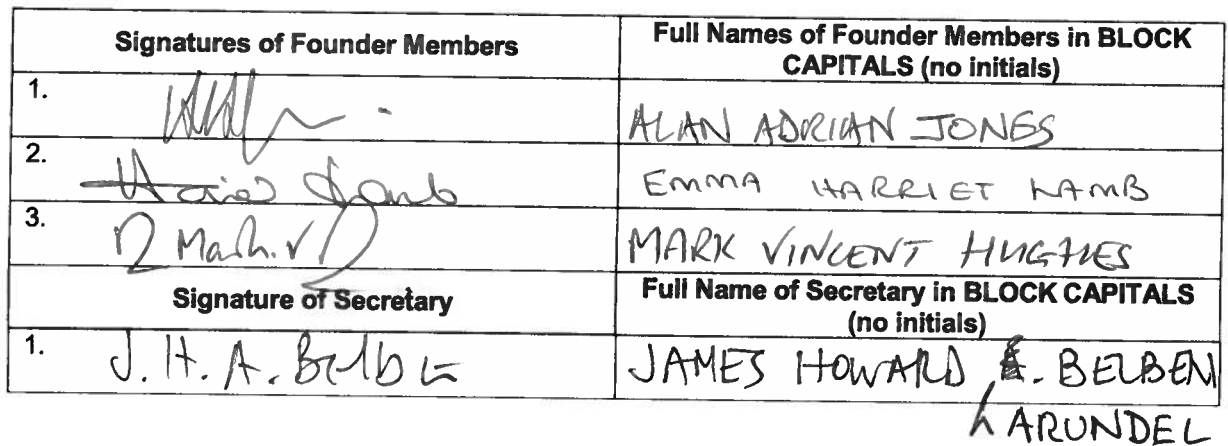 Signatures of Founder Members
Full Names of Founder Members in BLOCK
CAPITALS (no initials)
1.
ALAN ADRIAN JONES
2.
EMMA HARRIET LAMB
3.
MARK VINCENT HUGHES
Signature of Secretary
Full Name of Secretary in BLOCK CAPITALS
(no initials)
1. J. H. A. Belben
JAMES HOWARD A. BELBEN
ARUNDEL